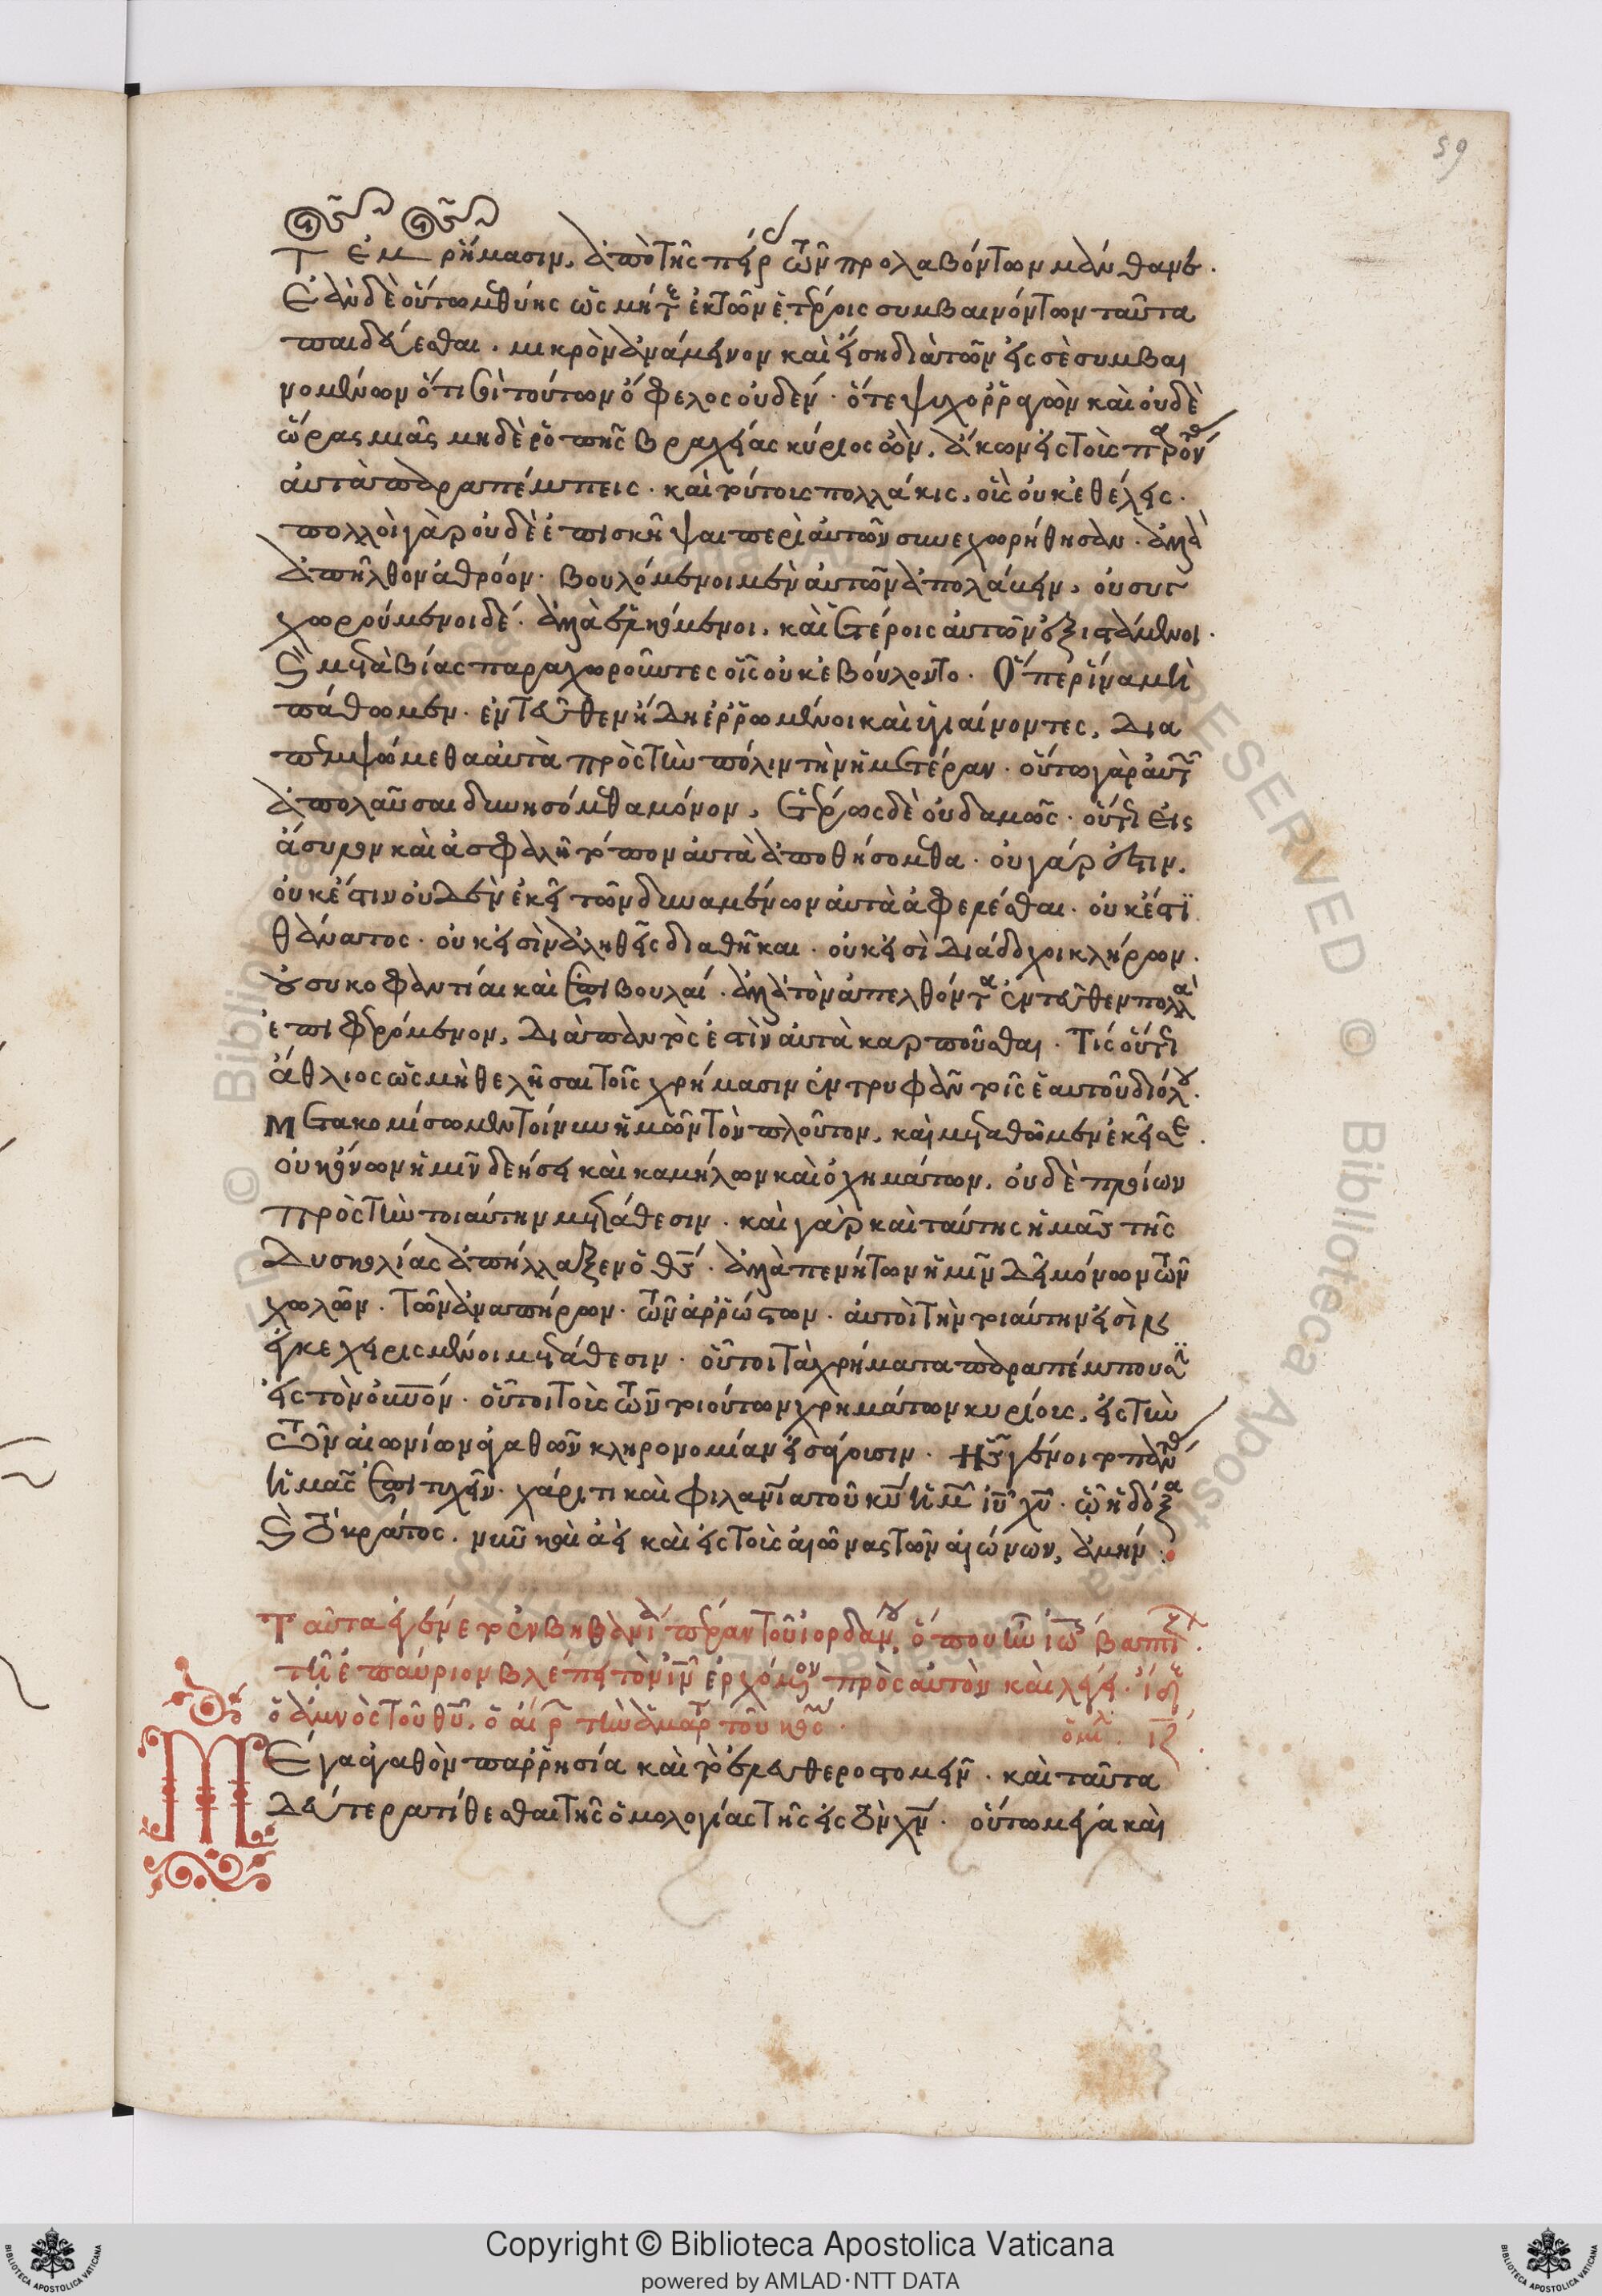 59
τ ἐν ῥήμασιν, ἀπὸ τῆς πείρας τῶν προλαβόντων μάνθανε.
Ἐὰν δὲ οὕτω μεθύῃς ὡς μήτε ἐκ τῶν ἑτέροις συμβαινόντων ταῦτα
παιδεύεσθαι. μικρὸν ἀνάμεινον καὶ εἴσῃ διὰ τῶν εἰς σὲ συμβαι
νομένων ὅτι ἀπὸ τούτων ὄφελος οὐδέν. ὅτε ψυχορραγῶν καὶ οὐδὲ
ὥρας μιᾶς μηδὲ ῥοπῆς βραχείας κύριος ὢν, ἄκων εἰς τοὺς παρόντας
αὐτὰ παραπέμπεις. καὶ τούτοις πολλάκις, οἷς οὐκ ἐθέλεις.
πολλοὶ γὰρ οὐδὲ ἐπισκῆψαι περὶ αὐτῶν συνεχωρήθησαν. ἀλλὰ
ἀπῆλθον ἀθρόον. βουλόμενοι μὲν αὐτῶν ἀπολαύειν, οὐ συγ
χωρούμενοι δέ. ἀλλὰ ἑλκόμενοι, καὶ ἑτέροις αὐτῶν ἐξιστάμενοι.
καὶ μετὰ βίας παραχωροῦντες οἷς οὐκ ἐβούλοντο. Ὅπερ ἵνα μὴ
πάθωμεν. ἐντεῦθεν ἤδη ἐρρωμένοι καὶ ὑγιαίνοντες, δια
πεμψώμεθα αὐτὰ πρὸς τὴν πόλιν τὴν ἡμετέραν. οὕτω γὰρ αὐτῶν
ἀπολαῦσαι δυνησόμεθα μόνον, ἑτέρως δὲ οὐδαμῶς. οὕτως εἰς
ἄσυλον καὶ ἀσφαλῆ τόπον αὐτὰ ἀποθησόμεθα. οὐ γάρ ἐστιν.
οὐκ ἔστιν οὐδὲν ἐκεῖ τῶν δυναμένων αὐτὰ ἀφελέσθαι. οὐκ ἔστι
θάνατος. οὐκ εἰσὶν ἀληθεῖς διαθῆκαι. οὐκ εἰσὶ διάδοχοι κλήρων.
οὐ συκοφαντίαι καὶ ἐπιβουλαί. ἀλλὰ τὸν ἀπελθόντα ἐντεῦθεν πολλὰ
ἐπιφερόμενον, διὰ παντὸς ἐστὶν αὐτὰ καρποῦσθαι. Τίς οὕτως
ἄθλιος ὡς μὴ θελῆσαι τοῖς χρήμασιν ἐντρυφᾶν τοῖς ἑαυτοῦ διόλου.
Μετακομίσωμεν τοίνυν ἡμῶν τὸν πλοῦτον, καὶ μεταθῶμεν ἐκεῖσε.
οὐκ ὄνων ἡμῖν δεήσει καὶ καμήλων καὶ ὀχημάτων. οὐδὲ πλοίων
πρὸς τὴν τοιαύτην μετάθεσιν. καὶ γὰρ καὶ ταύτης ἡμᾶς τῆς
δυσκολίας ἀπήλλαξεν ὁ θς. ἀλλὰ πενήτων ἡμῖν δεῖ μόνων τῶν
χωλῶν. τῶν ἀναπήρων. τῶν ἀρρώστων. αὐτοὶ τὴν τοιαύτην εἰσὶν
ἐγκεχειρισμένοι μετάθεσιν. οὗτοι τὰ χρήματα παραπέμπουσιν
εἰς τὸν οὐνον. οὗτοι τοὺς τῶν τοιούτων χρημάτων κυρίους, εἰς τὴν
τῶν αἰωνίων ἀγαθῶν κληρονομίαν εἰσάγουσιν. Ἧς γένοιτο πάντας
ἡμᾶς ἐπιτυχεῖν. χάριτι καὶ φιλανίᾳ τοῦ κυ ἡμῶν ιυ χυ. ᾧ ἡ δόξα
καὶ τὸ κράτος. νῦν καὶ ἀεὶ καὶ εἰς τοὺς αἰῶνας τῶν αἰώνων, ἀμήν:
Ταῦτα ἐγένετο ἐν βηθανίᾳ πέραν τοῦ ἰορδάνου, ὅπου ἦν ἰω βαπτίζων.
τῇ ἐπαύριον βλέπει τὸν ιν ἐρχόμενον πρὸς αὐτὸν καὶ λέγει. ἴδε
ὁ ἀμνὸς τοῦ θυ, ὁ αἴρων τὴν ἁμαρτίαν τοῦ κόσμου. ὁμιλ. ιζ.
Μέγα ἀγαθὸν παρρησία καὶ τὸ ἐλευθεροστομεῖν. καὶ ταῦτα
δεύτερα τίθεσθαι τῆς ὁμολογίας τῆς εἰς τὸν χν. οὕτω μέγα καὶ
Copyright © Biblioteca Apostolica Vaticana
powered by AMLAD·NTT DATA